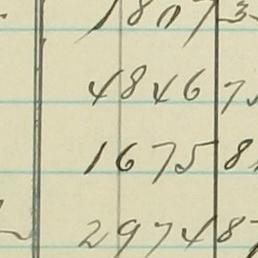 1807 3
4846 7
1675 8
2974 87